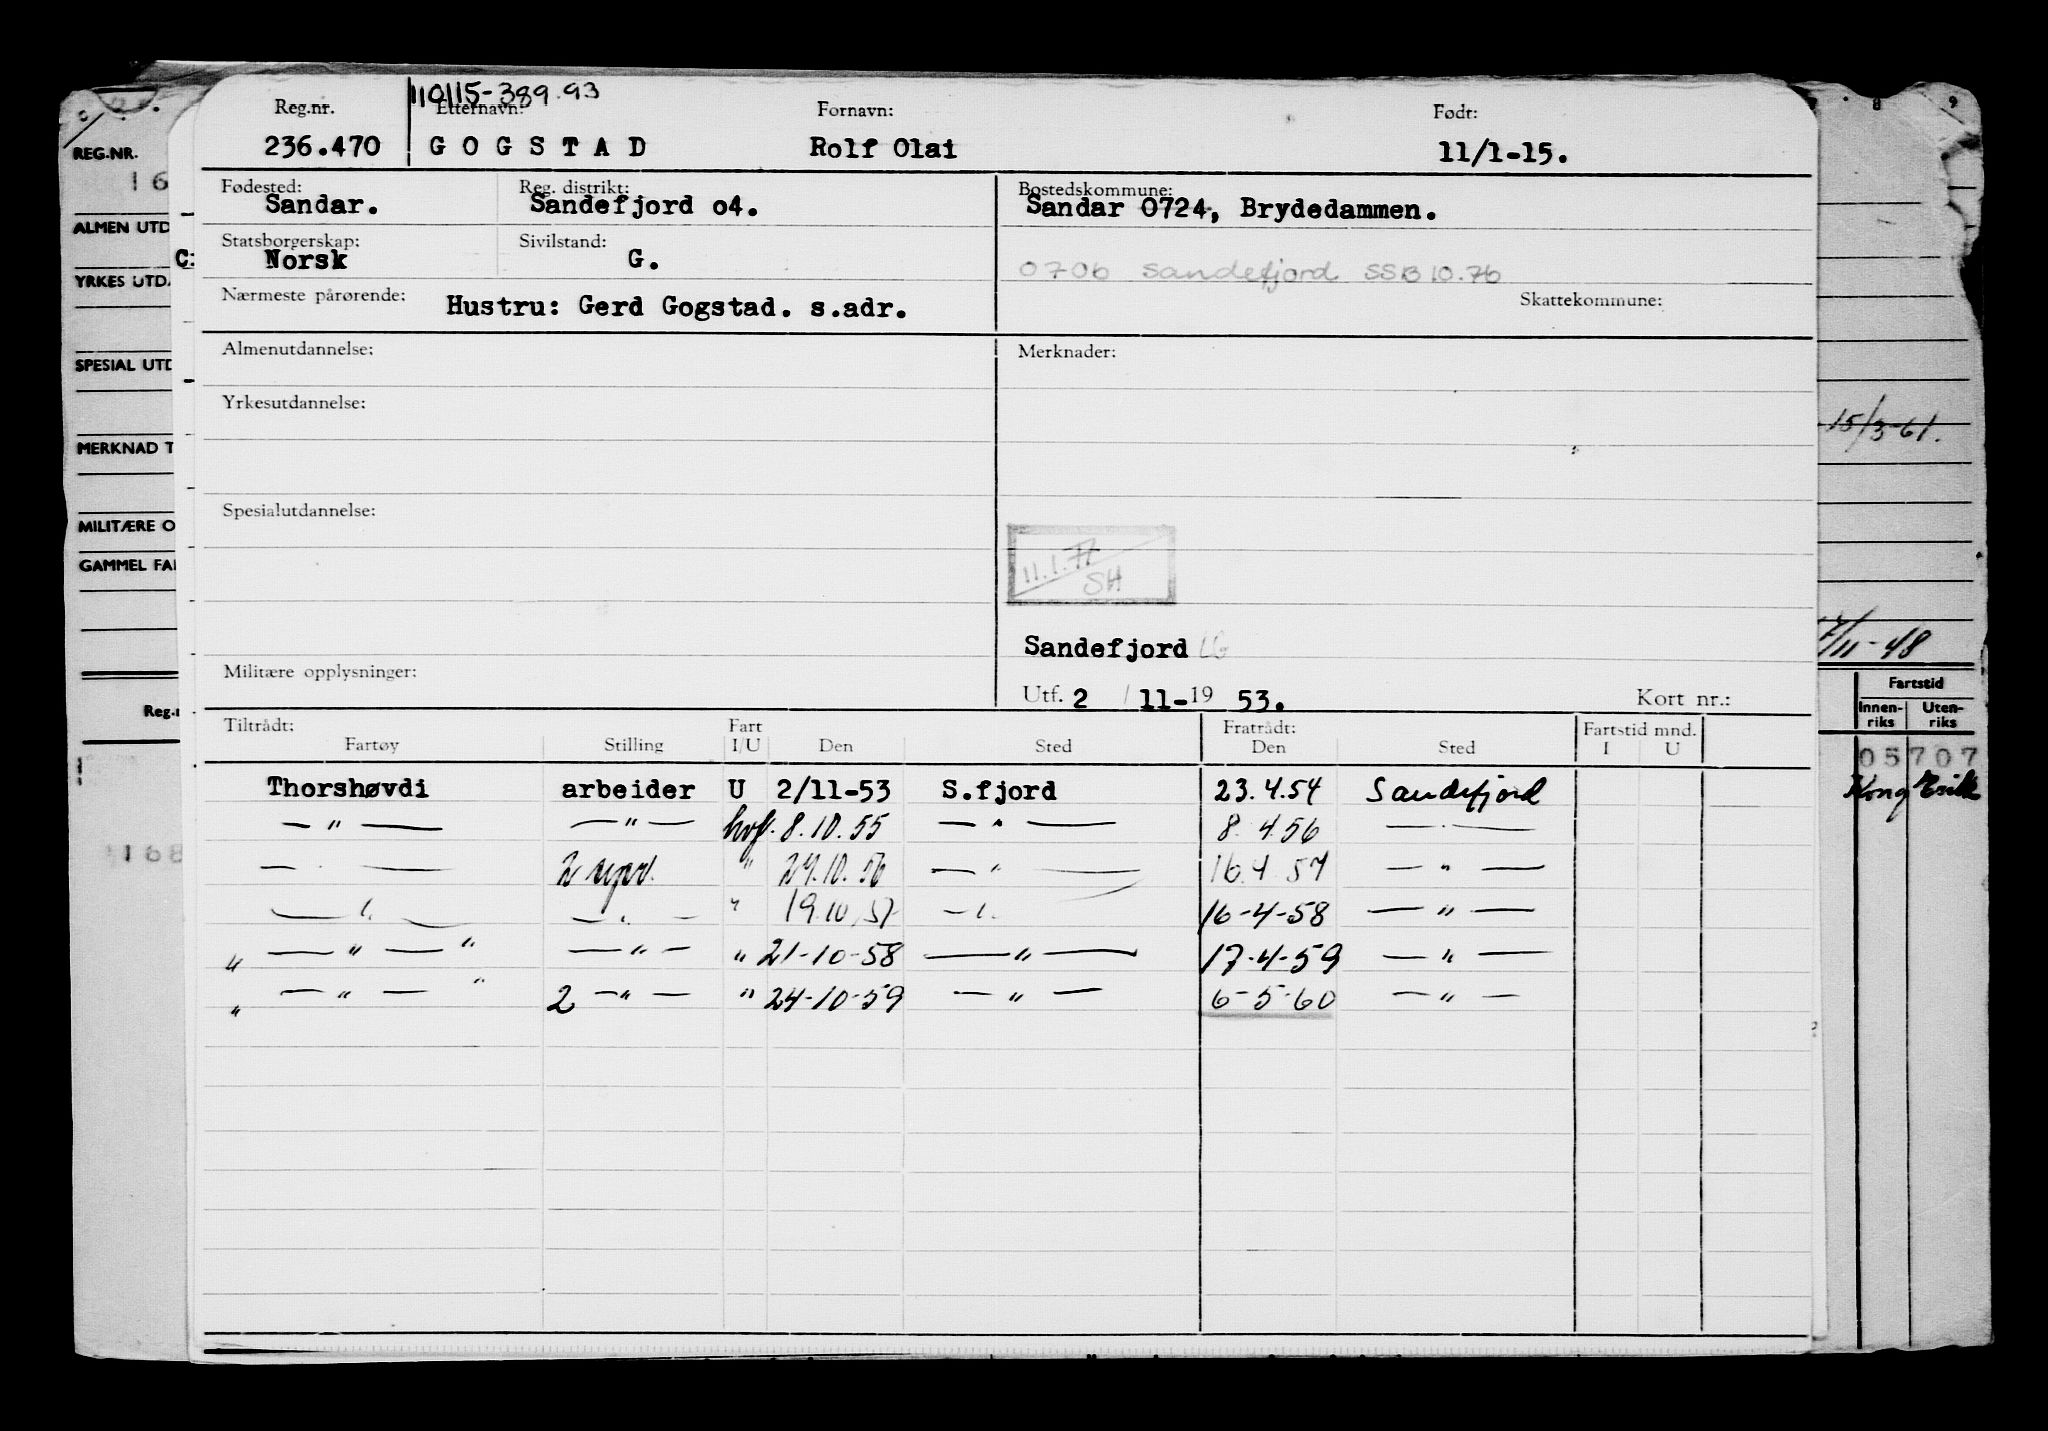 110115-389.93
Reg.nr. Etternavn: Fornavn: Født:
236.470 GOGSTAD Rolf Olai 11/1-15.
Fødested: Reg. distrikt: Bostedskommune:
Sandar. Sandefjord o4. Sandar 0724, Brydedammen.
Statsborgerskap: Sivilstand:
Norsk G.
0706 Sandefjord SSB 10.76
Nærmeste pårørende: Hustru: Gerd Gogstad. s.adr. Skattekommune:
Almenutdannelse: Merknader:
Yrkesutdannelse:
Spesialutdannelse:
11.1.77
SH
Sandefjord LG
Militære opplysninger:
Utf. 2 / 11-19 53. Kort nr.:
Tiltrådt: Fart Fratrådt: Fartstid mnd.
Fartøy Stilling I/U Den Sted Den Sted I U
Thorshøvdi arbeider U 2/11-53 S.fjord 23.4.54 Sandefjord
— " — — " — hvf. 8.10.55 — " — 8.4.56 — " —
— " — 2 " 24.10.56 — " — 16.4.57 — " —
— " — — " — " 19.10.57 — " — 16-4-58 — " —
" — " — " — " — " 21-10-58 — " — 17-4-59 — " —
" — " — " 2 — " — " 24-10-59 — " — 6-5-60 — " —
REG.NR.
16
ALMEN UTD
C:
YRKES UTD
SPESIAL UTD
MERKNAD T
MILITÆRE O
GAMMEL FA
Reg.
168
8 9
15/3-61.
7/11-48
Fartstid
Innen-riks Uten-riks
05707
Kong Erik